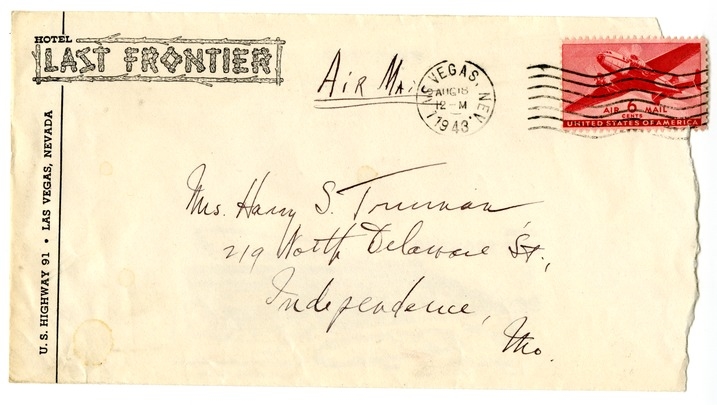 HOTEL
LAST FRONTIER
U. S. HIGHWAY 91 • LAS VEGAS, NEVADA
Air Mail
LAS VEGAS, NEV.
AUG 18
12 - M
1943
AIR 6 MAIL
CENTS
UNITED STATES OF AMERICA
Mrs. Harry S. Truman
219 North Delaware St.,
Independence,
Mo.